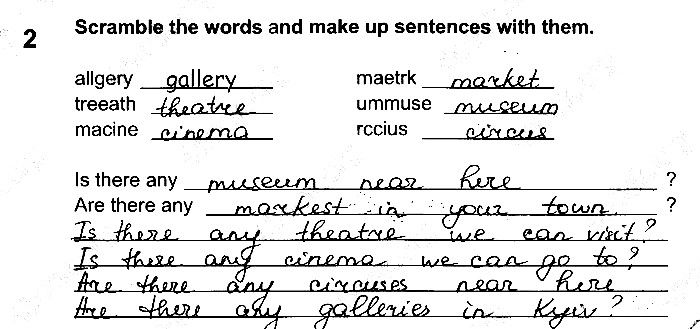 2 Scramble the words and make up sentences with them.
allgery gallery maetrk market
treeath theatre ummuse museum
macine cinema rccius circus
Is there any museum near here ?
Are there any markest in your town ?
Is there any theatre we can visit?
Is there any cinema we can go to?
Are there any circuses near here
Are there any galleries in Kyiv?